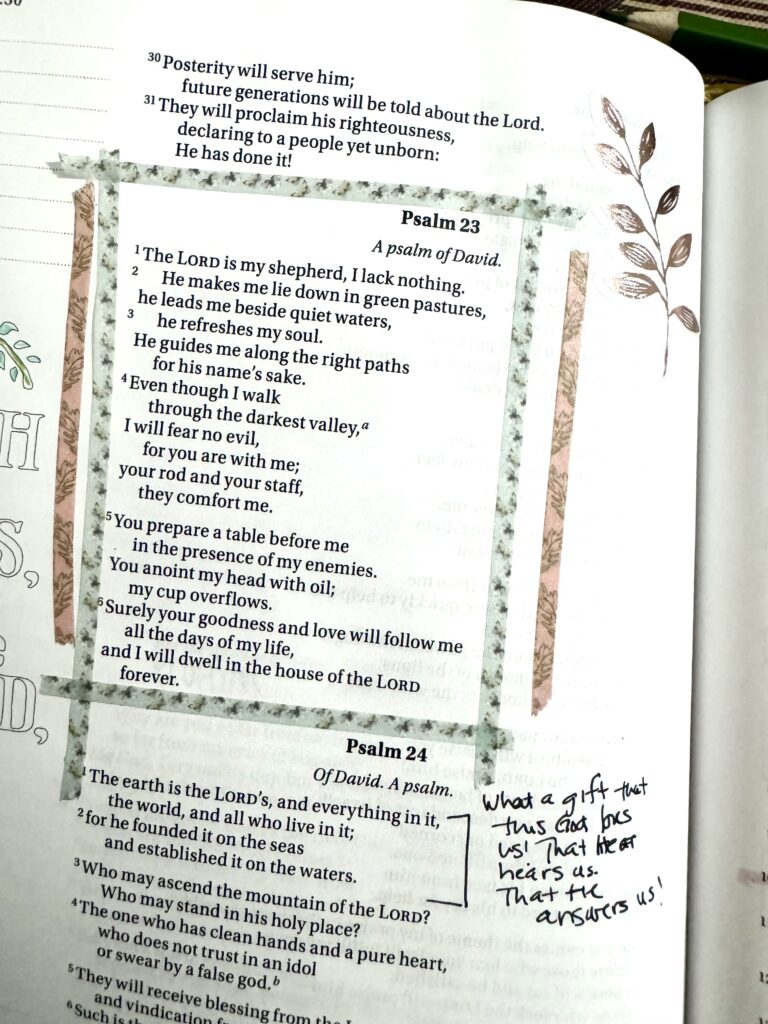 :30
30 Posterity will serve him;
future generations will be told about the Lord.
31 They will proclaim his righteousness,
declaring to a people yet unborn:
He has done it!
Psalm 23
A psalm of David.
1 The LORD is my shepherd, I lack nothing.
2 He makes me lie down in green pastures,
he leads me beside quiet waters,
3 he refreshes my soul.
He guides me along the right paths
for his name's sake.
4 Even though I walk
through the darkest valley,a
I will fear no evil,
for you are with me;
your rod and your staff,
they comfort me.
5 You prepare a table before me
in the presence of my enemies.
You anoint my head with oil;
my cup overflows.
6 Surely your goodness and love will follow me
all the days of my life,
and I will dwell in the house of the LORD
forever.
Psalm 24
Of David. A psalm.
1 The earth is the LORD's, and everything in it,
the world, and all who live in it;
2 for he founded it on the seas
and established it on the waters.
3 Who may ascend the mountain of the LORD?
Who may stand in his holy place?
4 The one who has clean hands and a pure heart,
who does not trust in an idol
or swear by a false god.b
5 They will receive blessing from the
and vindication
6 Such is
What a gift that
this God loves
us! That He
hears us.
That He
answers us!
H
S,
D,